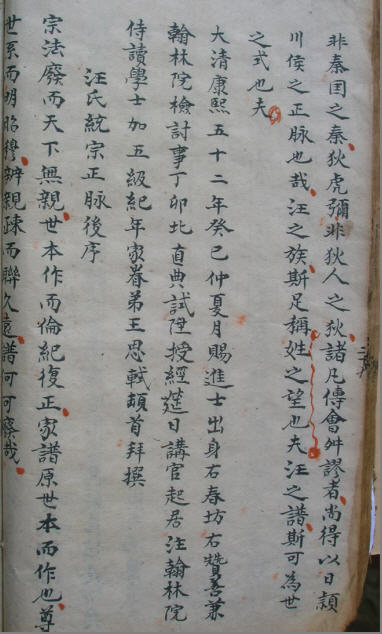 非秦囯之秦狄虎彌非狄人之狄諸凡傳會舛謬者尚得以日頴
川侯之正脉也哉汪之族斯足稱姓之望也夫汪之譜斯可為世
之式也夫
大清康熙五十二年癸巳仲夏月賜進士出身右春坊右贊善兼
翰林院檢討事丁卯北直典試陞授經筵日講官起居注翰林院
侍讀學士加五級紀年家眷弟王思軾頓首拜撰
汪氏統宗正脉後序
宗法廢而天下無親世本作而倫紀復正家譜原世本而作也尊
世系而明昭穆辨親疎而聯久遠譜何可廢哉